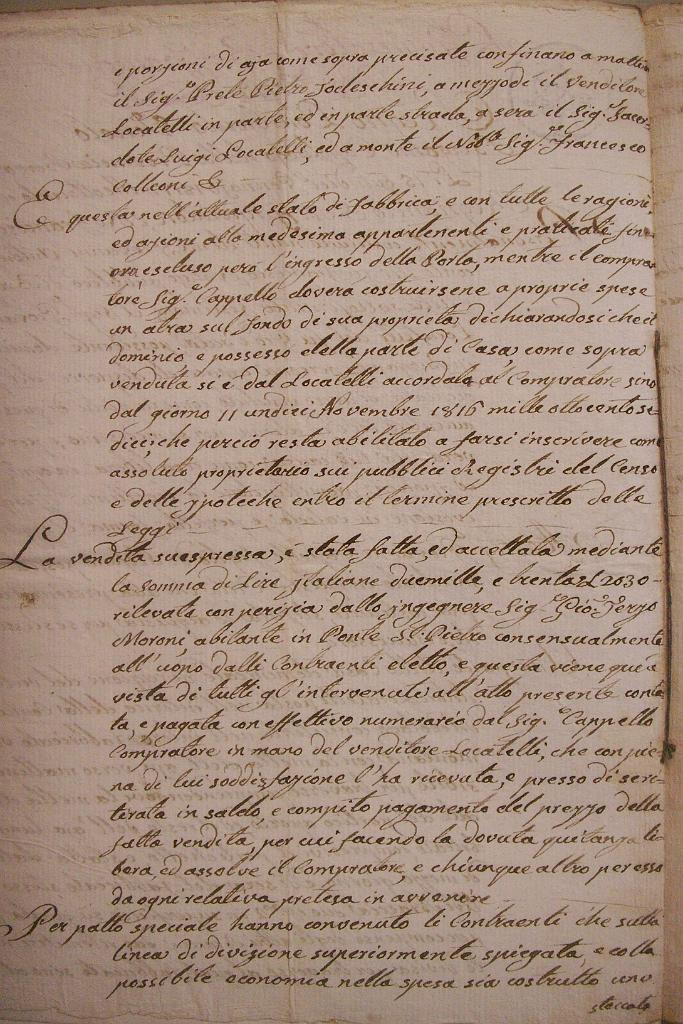 e porzioni di aja come sopra precisate confinano a mattina
il Sig.r Prete Pietro Todeschini, a mezzodì il venditore
Locatelli in parte, ed in parte strada, a sera il Sig.r Sacer-
dote Luigi Locatelli, ed a monte il Nob.e Sig.r Francesco
Colleoni &
E questa nell'attuale stato di Fabbrica, e con tutte le ragioni,
ed azioni alla medesima appartenenti e praticate fin-
ora escluso però l'ingresso della Porta, mentre il compra-
tore Sig.r Cappello dovera costruirsene a proprie spese
un altra sul fondo di sua proprietà dichiarandosi che il
dominio e possesso della parte di Casa, come sopra
venduta si è dal Locatelli accordata al Compratore sino
dal giorno 11 undici Novembre 1816 mille ottocento se-
dici, che perciò resta abilitato a farsi inscrivere come
assoluto proprietario sui pubblici Registri del Censo
e delle ypoteche entro il termine prescritto delle
Leggi
La vendita suespressa, è stata fatta, ed accettata mediante
la somma di Lire Italiane duemille, e trenta £ 2030-
rilevata con perizia dallo Jngegnere Sig.r Gio: Terzo
Moroni, abitante in Ponte S.t Pietro consensualmente
all'uopo dalli Contraenti eletto, e questa viene quì a
vista di tutti gl'intervenuti all'atto presente conta-
ta, e pagata con effettivo numerario dal Sig.r Cappello
Compratore in mano del venditore Locatelli, che con pie-
na di lui soddisfazione l'ha ricevuta, e presso di se ri-
tirata in saldo, e compito pagamento del prezzo della
fatta vendita, per cui facendo la dovuta quitanza li-
bera, ed assolve il Compratore, e chiunque altro per esso
da ogni relativa pretesa in avvenire
Per patto speciale hanno convenuto li Contraenti che sulla
linea di divisione superiormente spiegata, e colla
possibile economia nella spesa sia costrutto uno
steccato